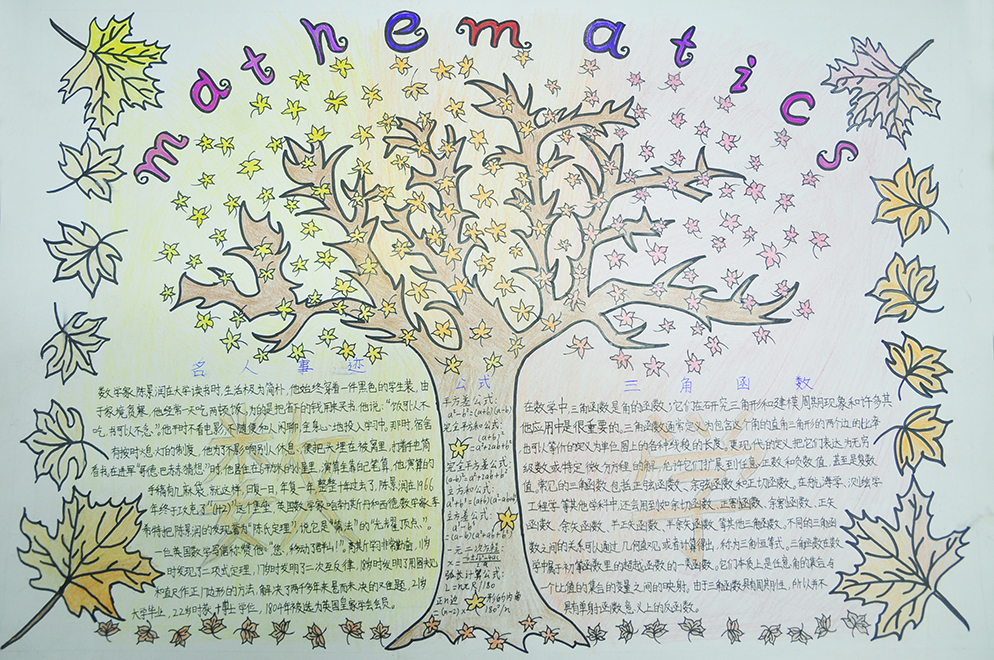 mathematics
名人事迹
数学家陈景润在大学读书时,生活极为简朴,他始终穿着一件黑色的学生装,由
于家境贫寒,他经常一天吃两顿饭,为的是把省下的钱用来买书,他说:“饭可以不
吃,书可以不念。”他平时不看电影,不随便和人闲聊,全身心地投入学习中,那时,宿舍
有按时熄灯的制度,他为了不影响别人休息,便把头埋在被窝里,打着手电筒
看书,在进军“哥德巴赫猜想”时,他居住在6平方米的小屋里,演算生涯纪笔算,他演算的
手稿有几麻袋,就这样,日复一日,年复一年,整整十年过去了,陈景润在1966
年终于攻克了“(1+2)”这个堡垒,英国数学家哈勃斯丹和西德数学家李
希特把陈景润的发现誉为“陈氏定理”,说它是“筛法”的“光辉顶点”。
一位英国数学家写信称赞他“您移动了群山!”。高斯学习非常勤奋,11岁
时发现了二项式定理,17岁时发明了二次互反律,18岁时发明了用圆规
和直尺作正17边形的方法,解决了两千多年来悬而未决的难题,21岁
大学毕业,22岁时获博士学位,1804年被选为英国皇家学会会员。
公式
平方差公式:
a²-b²=(a+b)(a-b)
完全平方和公式:
(a+b)²
=a²+2ab+b²
完全平方差公式:
(a-b)²=a²-2ab+b²
立方和公式:
a³+b³=(a+b)(a²-ab+b²)
立方差公式:
a³-b³
=(a-b)(a²+ab+b²)
一元二次方程:
弧长计算公式:
L=nπR/180
三角函数
在数学中,三角函数是角的函数;它们在研究三角形和建模周期现象和许多其
他应用中是很重要的。三角函数通常定义为包含这个角的直角三角形的两个边的比率,
也可以等价的定义为单位圆上的各种线段的长度。更现代的定义把它们表达为无穷
级数或特定微分方程的解,允许它们扩展到任意正数和负数值,甚至是复数
值。常见的三角函数包括正弦函数、余弦函数和正切函数。在航海学、测绘学、
工程学等其他学科中,还会用到如余切函数、正割函数、余割函数、正矢
函数、余矢函数、半正矢函数、半余矢函数等其他三角函数。不同的三角函
数之间的关系可以通过几何直观或者计算得出,称为三角恒等式。三角函数在数
学中属于初等函数里的超越函数的一类函数。它们本质上是任意角的集合与
一个比值的集合的变量之间的映射。由于三角函数具有周期性,所以并不
具有单射函数意义上的反函数。